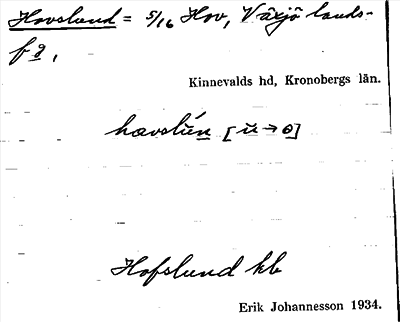 Hovslund = 5/16 Hov, Växjö lands-
fg,
Kinnevalds hd, Kronobergs län.
Hofslund kb
Erik Johannesson 1934.